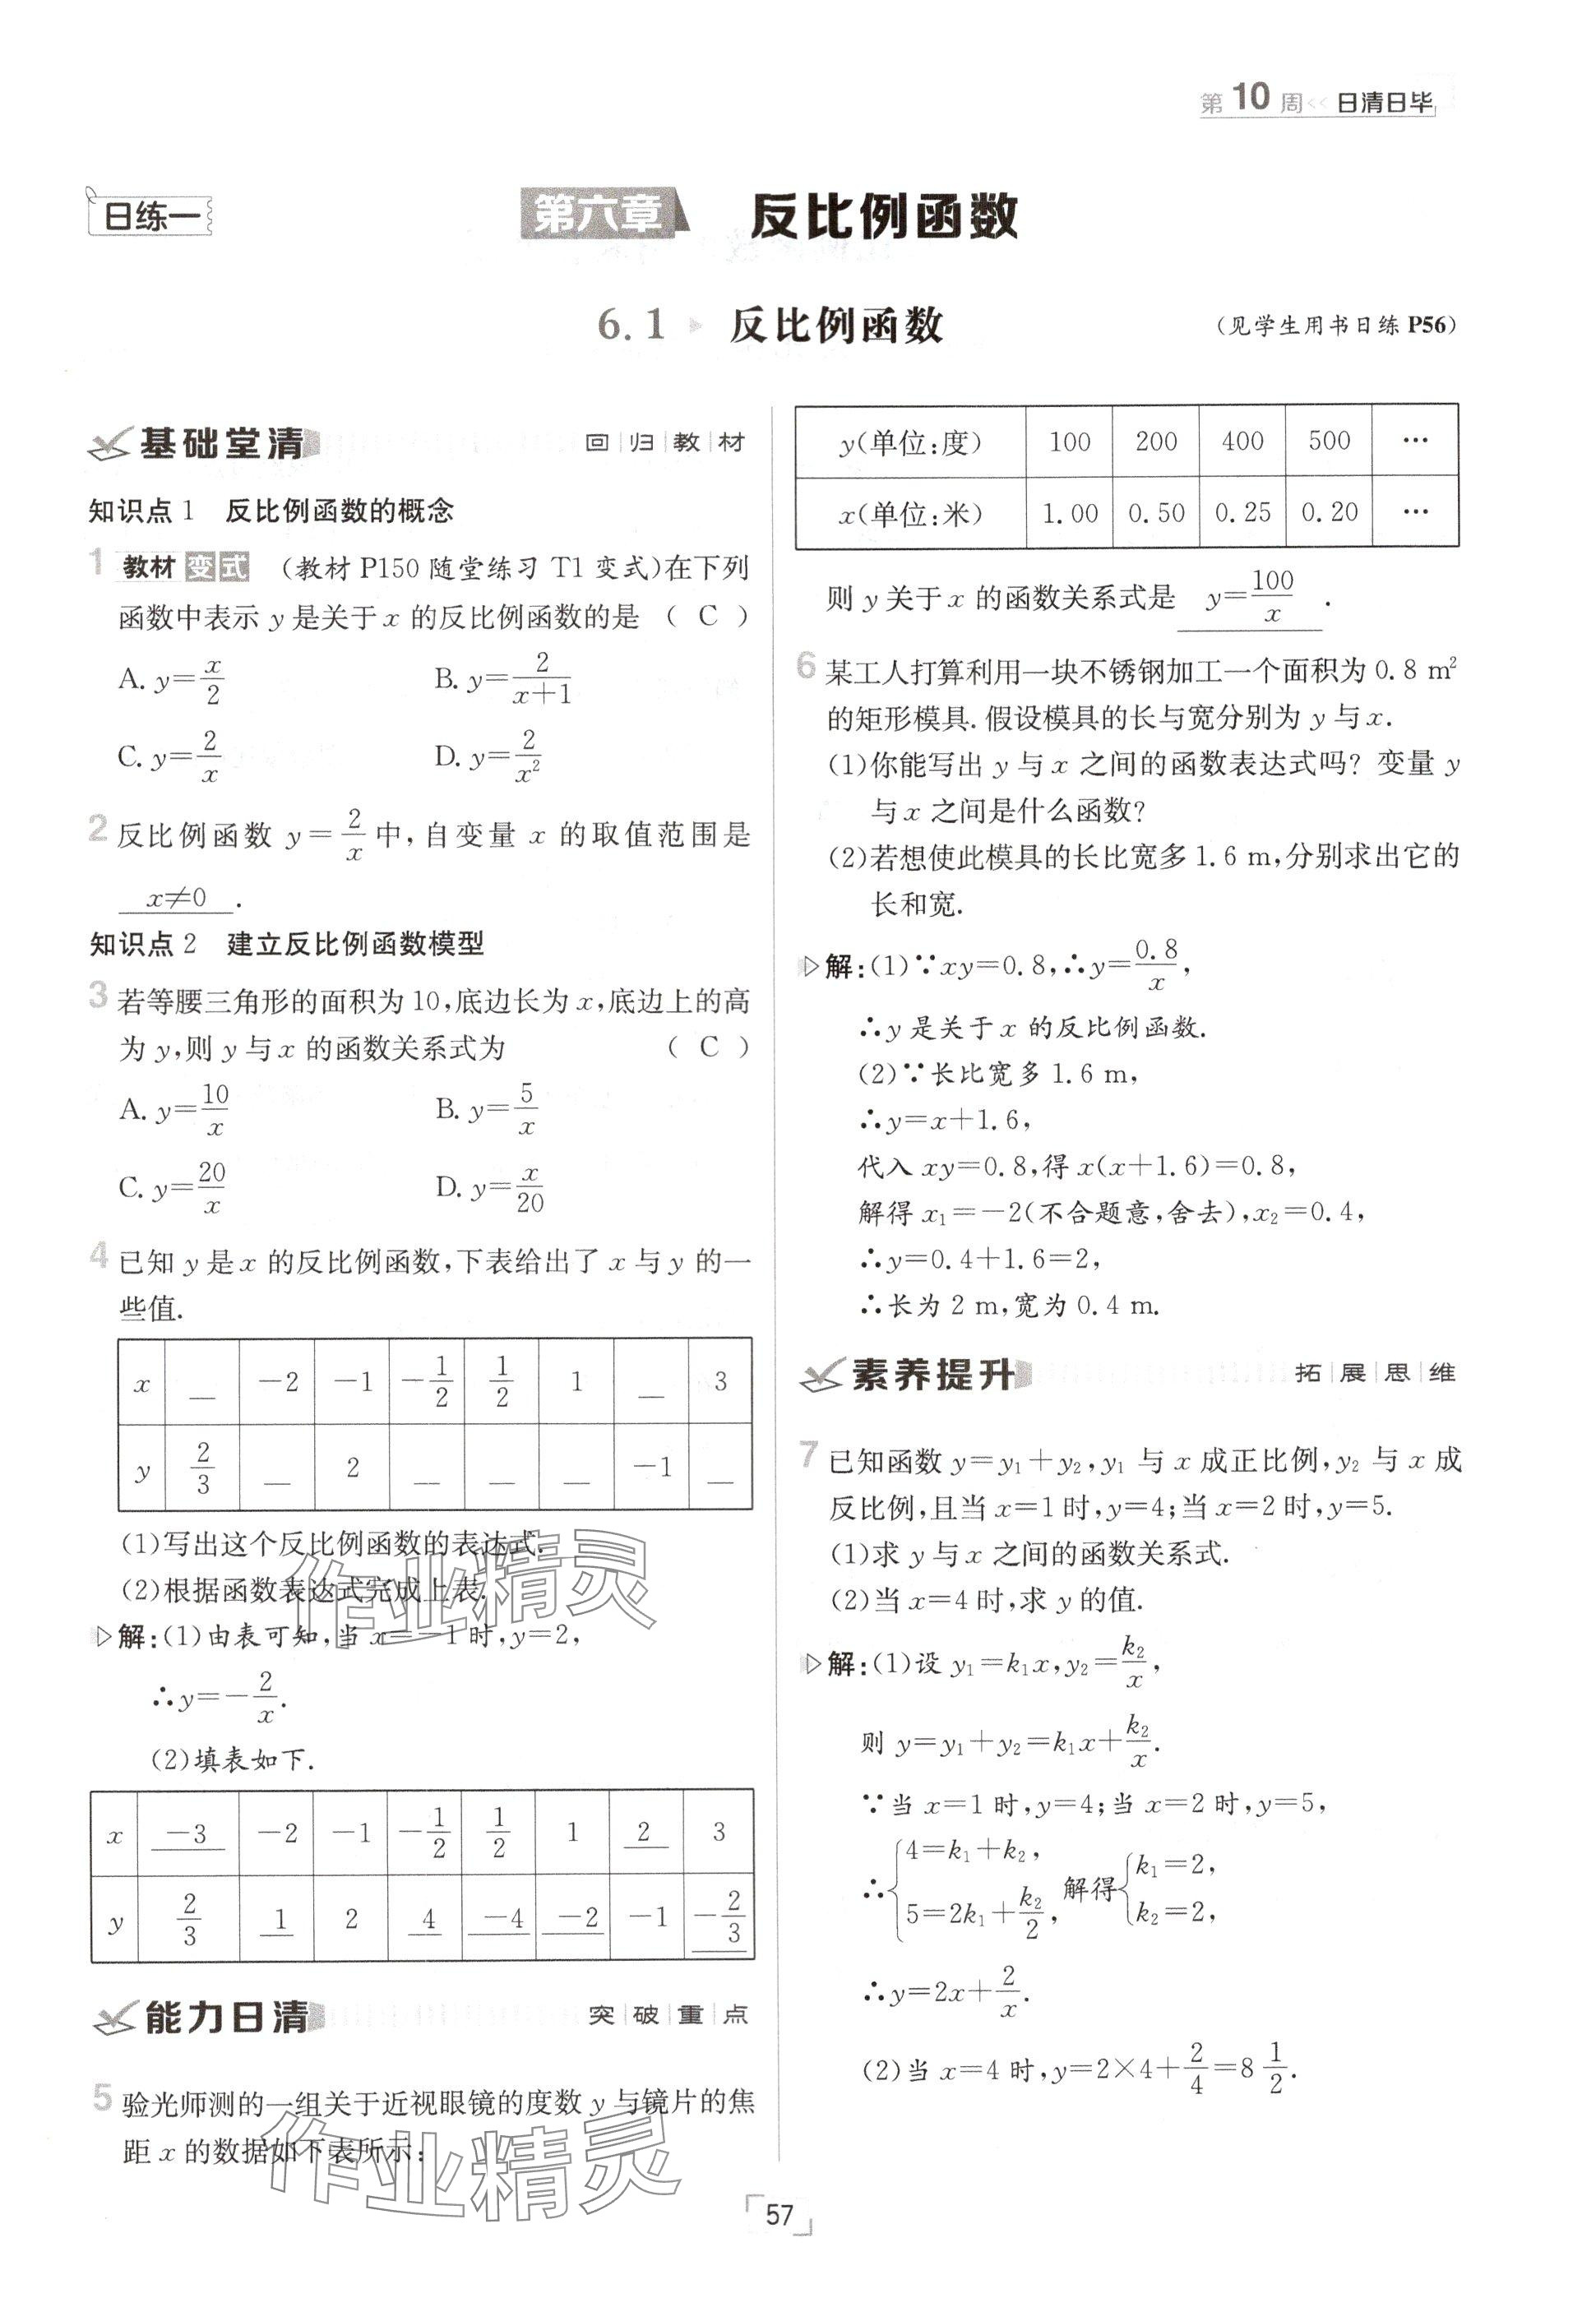 第 10 周<< 日清日毕
日练一
第六章 反比例函数
6.1 反比例函数 (见学生用书日练 P56)
基础堂清 回归教材
知识点 1 反比例函数的概念
1 教材变式 (教材 P150 随堂练习 T1 变式)在下列
函数中表示 y 是关于 x 的反比例函数的是 ( C )
A. y=x/2 B. y=2/(x+1)
C. y=2/x D. y=2/x²
2 反比例函数 y=2/x 中,自变量 x 的取值范围是
x≠0 .
知识点 2 建立反比例函数模型
3 若等腰三角形的面积为 10,底边长为 x,底边上的高
为 y,则 y 与 x 的函数关系式为 ( C )
A. y=10/x B. y=5/x
C. y=20/x D. y=x/20
4 已知 y 是 x 的反比例函数,下表给出了 x 与 y 的一
些值.
x __ -2 -1 -1/2 1/2 1 __ 3
y 2/3 __ 2 __ __ __ -1 __
(1)写出这个反比例函数的表达式.
(2)根据函数表达式完成上表.
解:(1)由表可知,当 x=-1 时,y=2,
∴y=-2/x.
(2)填表如下.
x -3 -2 -1 -1/2 1/2 1 2 3
y 2/3 1 2 4 -4 -2 -1 -2/3
能力日清 突破重点
5 验光师测的一组关于近视眼镜的度数 y 与镜片的焦
距 x 的数据如下表所示:
y(单位:度) 100 200 400 500 …
x(单位:米) 1.00 0.50 0.25 0.20 …
则 y 关于 x 的函数关系式是 y=100/x .
6 某工人打算利用一块不锈钢加工一个面积为 0.8 m²
的矩形模具.假设模具的长与宽分别为 y 与 x.
(1)你能写出 y 与 x 之间的函数表达式吗? 变量 y
与 x 之间是什么函数?
(2)若想使此模具的长比宽多 1.6 m,分别求出它的
长和宽.
解:(1)∵xy=0.8,∴y=0.8/x,
∴y 是关于 x 的反比例函数.
(2)∵长比宽多 1.6 m,
∴y=x+1.6,
代入 xy=0.8,得 x(x+1.6)=0.8,
解得 x₁=-2(不合题意,舍去),x₂=0.4,
∴y=0.4+1.6=2,
∴长为 2 m,宽为 0.4 m.
素养提升 拓展思维
7 已知函数 y=y₁+y₂,y₁ 与 x 成正比例,y₂ 与 x 成
反比例,且当 x=1 时,y=4;当 x=2 时,y=5.
(1)求 y 与 x 之间的函数关系式.
(2)当 x=4 时,求 y 的值.
解:(1)设 y₁=k₁x,y₂=k₂/x,
则 y=y₁+y₂=k₁x+k₂/x.
∵当 x=1 时,y=4;当 x=2 时,y=5,
∴{4=k₁+k₂, 5=2k₁+k₂/2, 解得{k₁=2, k₂=2,
∴y=2x+2/x.
(2)当 x=4 时,y=2×4+2/4=8 1/2.
57
作业精灵
作业精灵